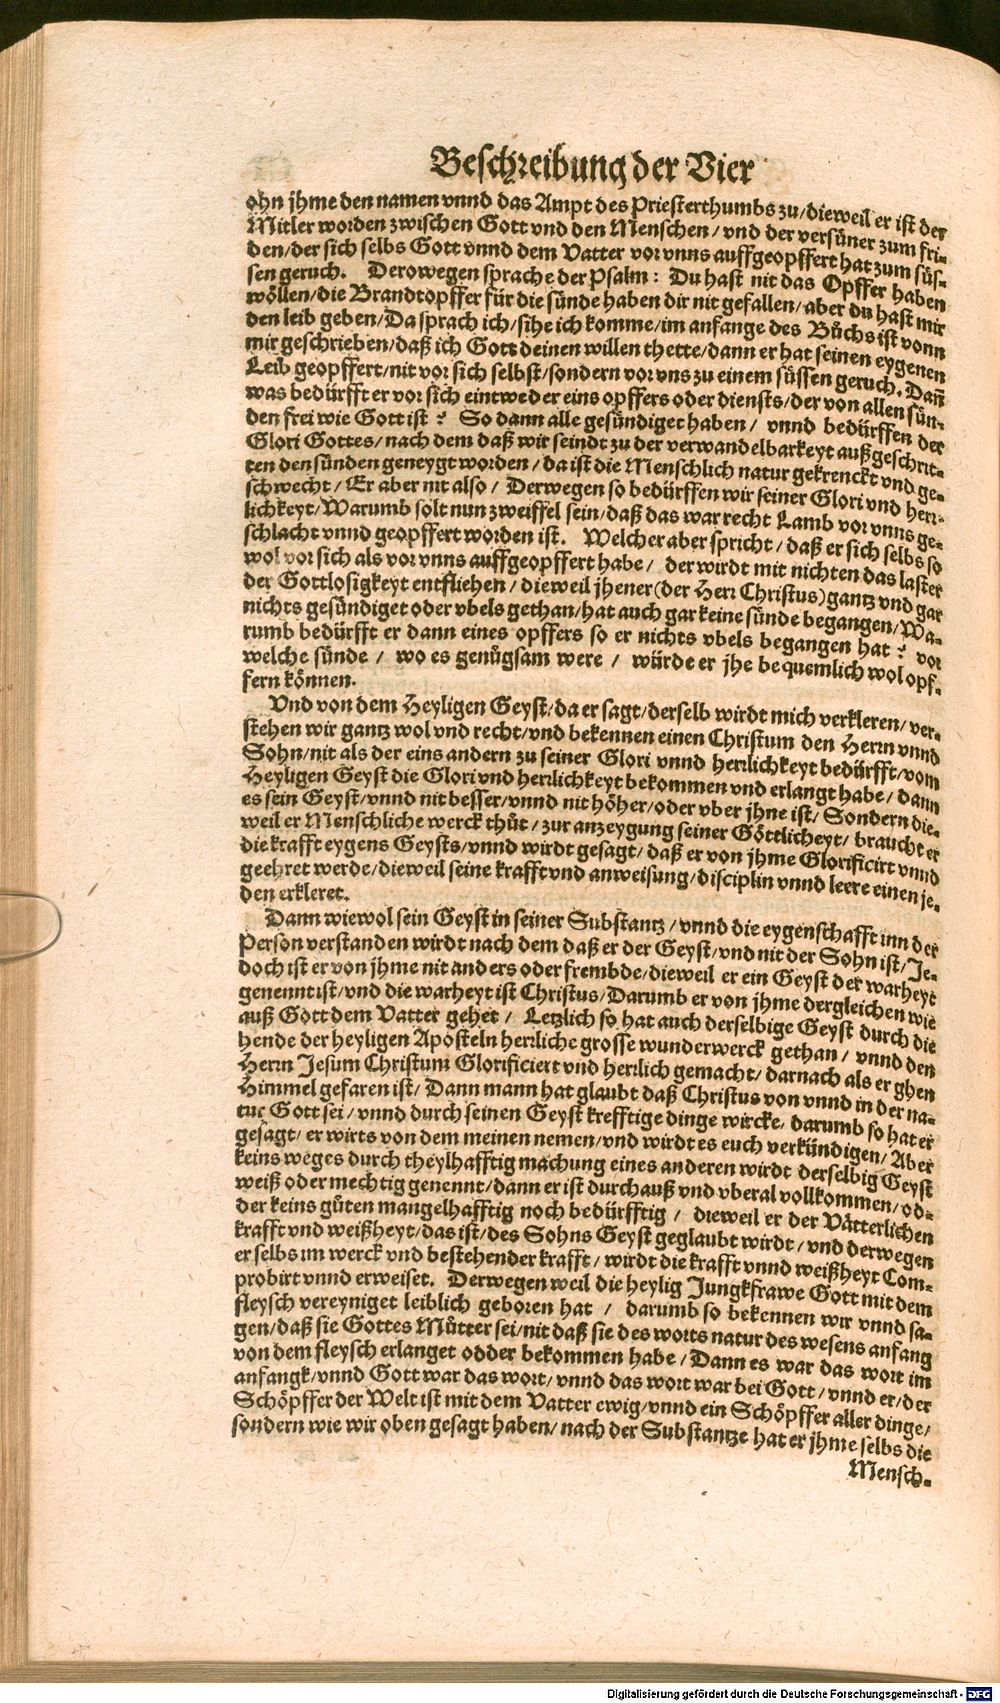 Beschreibung der Vier
ohn jhme den namen vnnd das Ampt des Priesterthumbs zu/ dieweil er ist der
Mitler worden zwischen Gott vnd den Menschen/ vnd der versüner zum fri-
den/ der sich selbs Gott vnnd dem Vatter vor vnns auffgeopffert hat zum süs-
sen geruch. Derowegen sprache der Psalm: Du hast nit das Opffer haben
wöllen/ die Brandtopffer für die sünde haben dir nit gefallen/ aber du hast mir
den leib geben/ Da sprach ich/ sihe ich komme/ im anfange des Bůchs ist vonn
mir geschrieben/ daß ich Gott deinen willen thette/ dann er hat seinen eygenen
Leib geopffert/ nit vor sich selbst/ sondern vor vns zu einem süssen geruch. Dañ
was bedürfft er vor sich eintweder eins opffers oder diensts/ der von allen sün-
den frei wie Gott ist? So dann alle gesündiget haben/ vnnd bedürffen der
Glori Gottes/ nach dem daß wir seindt zu der verwandelbarkeyt außgeschrit-
ten den sünden geneygt worden/ da ist die Menschlich natur gekrenckt vnd ge-
schwecht/ Er aber nit also/ Derwegen so bedürffen wir seiner Glori vnd herr-
lichkeyt/ Warumb solt nun zweiffel sein/ daß das war recht Lamb vor vnns ge-
schlacht vnnd geopffert worden ist. Welcher aber spricht/ daß er sich selbs so
wol vor sich als vor vnns auffgeopffert habe/ der wirdt mit nichten das laster
der Gottlosigkeyt entfliehen/ dieweil jhener (der Herr Christus) gantz vnd gar
nichts gesündiget oder vbels gethan/ hat auch gar keine sünde begangen/ Wa-
rumb bedürfft er dann eines opffers so er nichts vbels begangen hat? vor
welche sünde/ wo es genůgsam were/ würde er jhe bequemlich wol opf-
fern können.
Vnd von dem Heyligen Geyst/ da er sagt/ derselb wirdt mich verkleren/ ver-
stehen wir gantz wol vnd recht/ vnd bekennen einen Christum den Herrn vnnd
Sohn/ nit als der eins andern zu seiner Glori vnnd herrlichkeyt bedürfft/ vom
Heyligen Geyst die Glori vnd herrlichkeyt bekommen vnd erlangt habe/ dann
es sein Geyst/ vnnd nit besser/ vnnd nit höher/ oder vber jhne ist/ Sondern die-
weil er Menschliche werck thůt/ zur anzeygung seiner Göttlicheyt/ braucht er
die krafft eygens Geysts/ vnnd wirdt gesagt/ daß er von jhme Glorificirt vnnd
geehret werde/ dieweil seine krafft vnd anweisung/ disciplin vnnd leere einen je-
den erkleret.
Dann wiewol sein Geyst in seiner Substantz/ vnnd die eygenschafft inn der
Person verstanden wirdt nach dem daß er der Geyst/ vnd nit der Sohn ist/ Je-
doch ist er von jhme nit anders oder frembde/ dieweil er ein Geyst der warheyt
genennt ist/ vnd die warheyt ist Christus/ Darumb er von jhme dergleichen wie
auß Gott dem Vatter gehet/ Letzlich so hat auch derselbige Geyst durch die
hende der heyligen Aposteln herrliche grosse wunderwerck gethan/ vnnd den
Herrn Jesum Christum Glorificiert vnd herrlich gemacht/ darnach als er ghen
Himmel gefaren ist/ Dann mann hat glaubt daß Christus von vnnd in der na-
tur Gott sei/ vnnd durch seinen Geyst krefftige dinge wircke/ darumb so hat er
gesagt/ er wirts von dem meinen nemen/ vnd wirdt es euch verkündigen/ Aber
keins weges durch theylhafftig machung eines anderen wirdt derselbig Geyst
weiß oder mechtig genennt/ dann er ist durchauß vnd vberal vollkommen/ od-
der keins gůten mangelhafftig noch bedürfftig/ dieweil er der Vätterlichen
krafft vnd weißheyt/ das ist/ des Sohns Geyst geglaubt wirdt/ vnd derwegen
er selbs im werck vnd bestehender krafft/ wirdt die krafft vnnd weißheyt Com-
probirt vnnd erweiset. Derwegen weil die heylig Jungkfrawe Gott mit dem
fleysch vereyniget leiblich geboren hat/ darumb so bekennen wir vnnd sa-
gen/ daß sie Gottes Můtter sei/ nit daß sie des worts natur des wesens anfang
von dem fleysch erlanget odder bekommen habe/ Dann es war das wort im
anfangk/ vnnd Gott war das wort/ vnnd das wort war bei Gott/ vnnd er/ der
Schöpffer der Welt ist mit dem Vatter ewig/ vnnd ein Schöpffer aller dinge/
sondern wie wir oben gesagt haben/ nach der Substantze hat er jhme selbs die
Mensch-
Digitalisierung gefördert durch die Deutsche Forschungsgemeinschaft - DFG